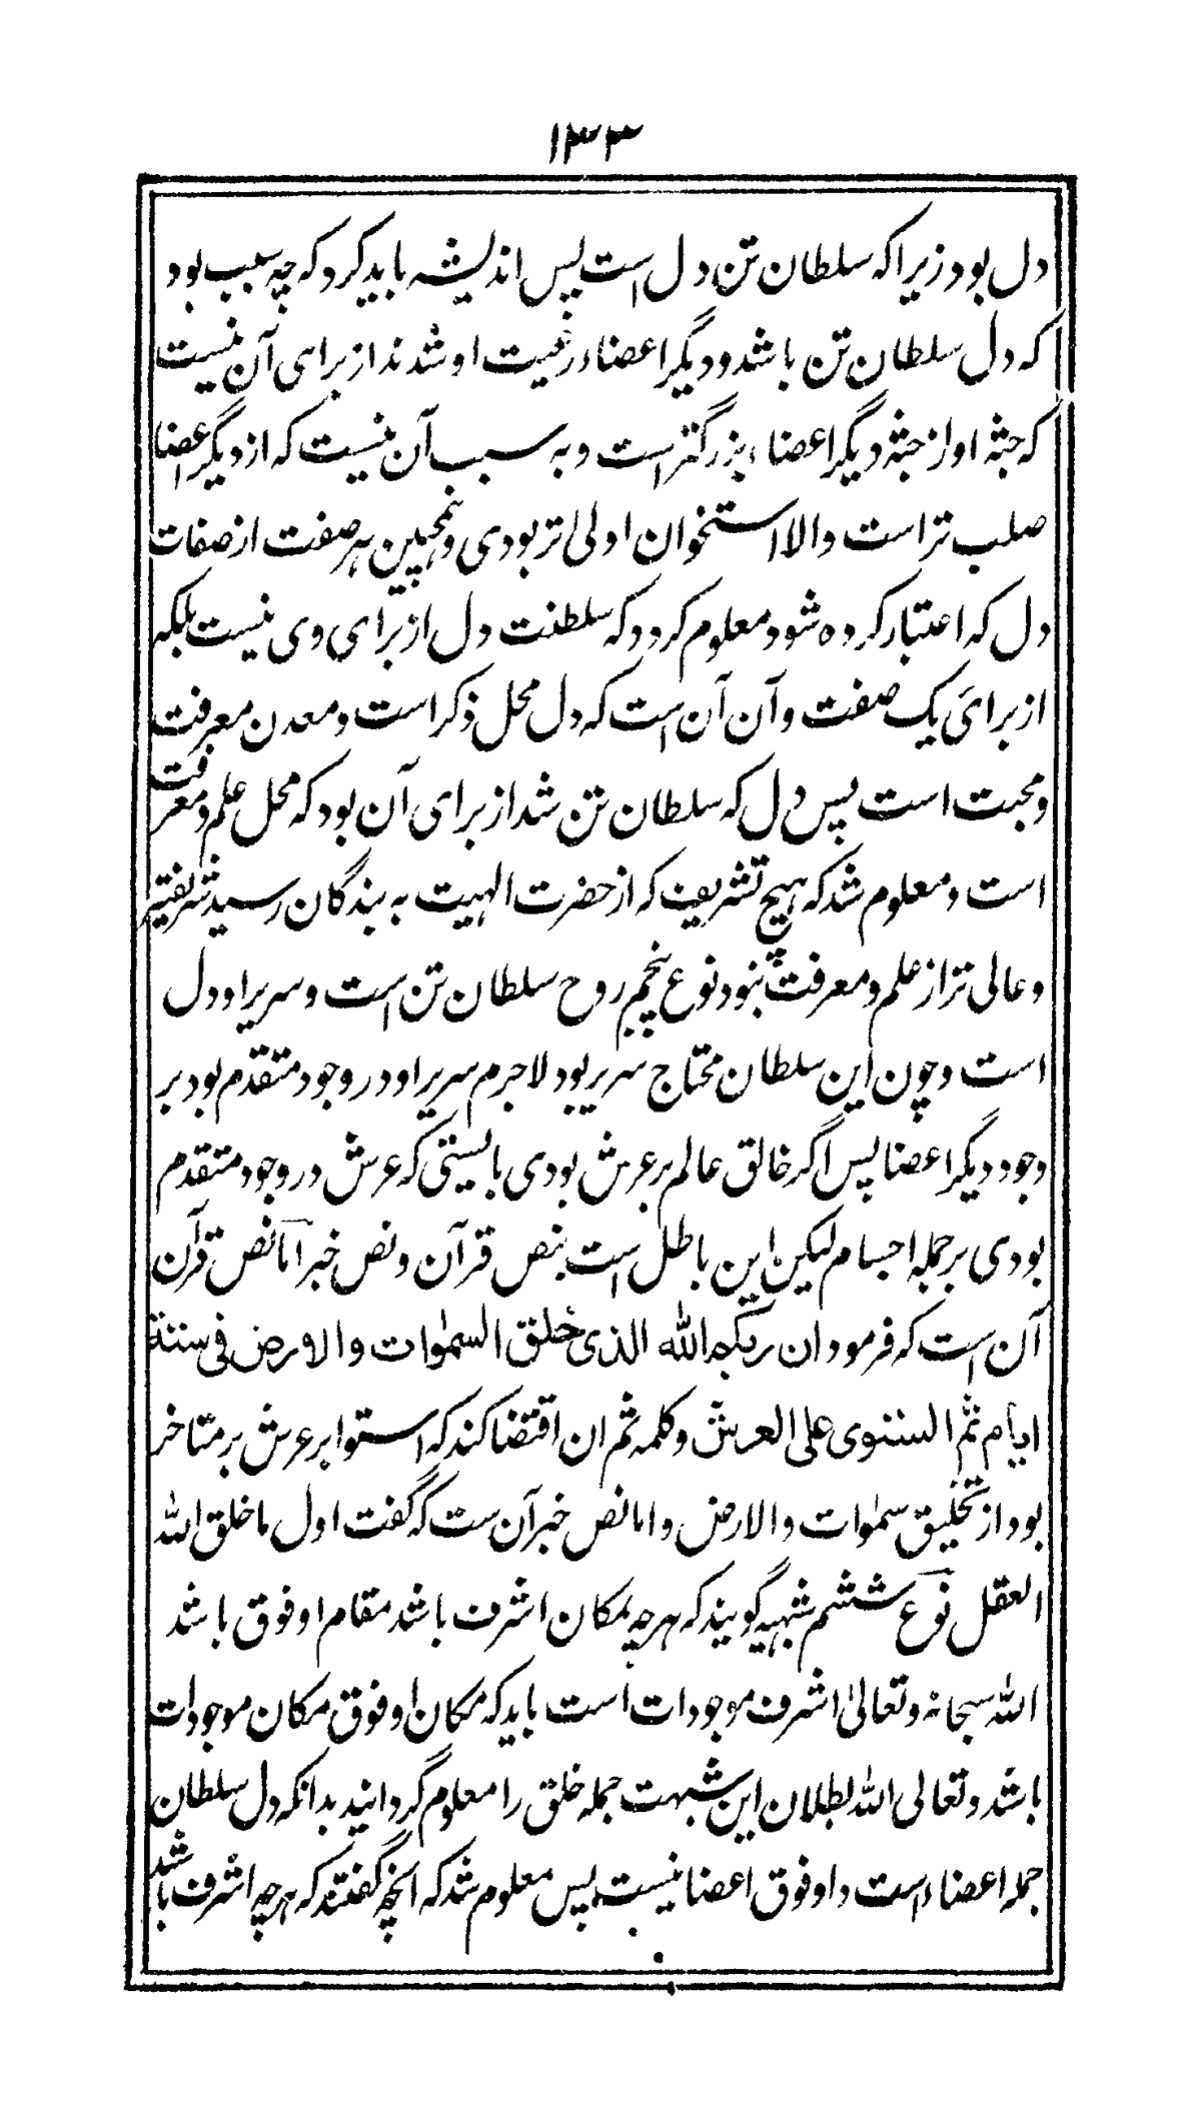 ۱۳۳
دل بود زیرا که سلطان تن دل است پس اندیشه باید کرد که چه سبب بود
که دل سلطان تن باشد و دیگر اعضاء رعیت او شدند از برای آن نیست
که جثه او از جثه دیگر اعضاء بزرگتر است و به سبب آن نیست که از دیگر اعضا
صلب تر است والا استخوان اولی تر بودی و همچنین هر صفت از صفات
دل که اعتبار کرده شود معلوم کردد که سلطنت دل از برای وی نیست بلکه
از برائ یک صفت و آن آن است که دل محل ذکر است و معدن معرفت
و محبت است پس دل که سلطان تن شد از برای آن بود که محل علم و معرفت
است و معلوم شد که هیچ تشریف که از حضرت الهیت به بندگان رسید شریفتر
و عالی تر از علم و معرفت نبود نوع پنجم روح سلطان تن است و سریر او دل
است و چون این سلطان محتاج سریر بود لاجرم سریر او در وجود متقدم بود بر
وجود دیگر اعضا پس اگر خالق عالم بر عرش بودی بایستی که عرش در وجود متقدم
بودی بر جمله اجسام لیکن این باطل است بنص قرآن و نص خبر اما نص قرآن
آن است که فرمود ان ربکم الله الذی خلق السمٰوات والارض فی ستة
ایام ثم استوی علی العرش و کلمه ثم ان اقتضا کند که استوا بر عرش بر متاخر
بود از تخلیق سمٰوات والارض و اما نص خبر آن ست که گفت اول ما خلق الله
العقل نوع ششم شبهیه گویند که هر چه بمکان اشرف باشد مقام او فوق باشد
الله سبحانه و تعالیٰ اشرف موجودات است باید که مکان او فوق مکان موجودات
باشد و تعالی الله بطلان این شبهت جمله خلق را معلوم گردانید بدانکه دل سلطان
جمله اعضاء است و او فوق اعضا نیست پس معلوم شد که آنچه گفتند که هر چه اشرف باشد